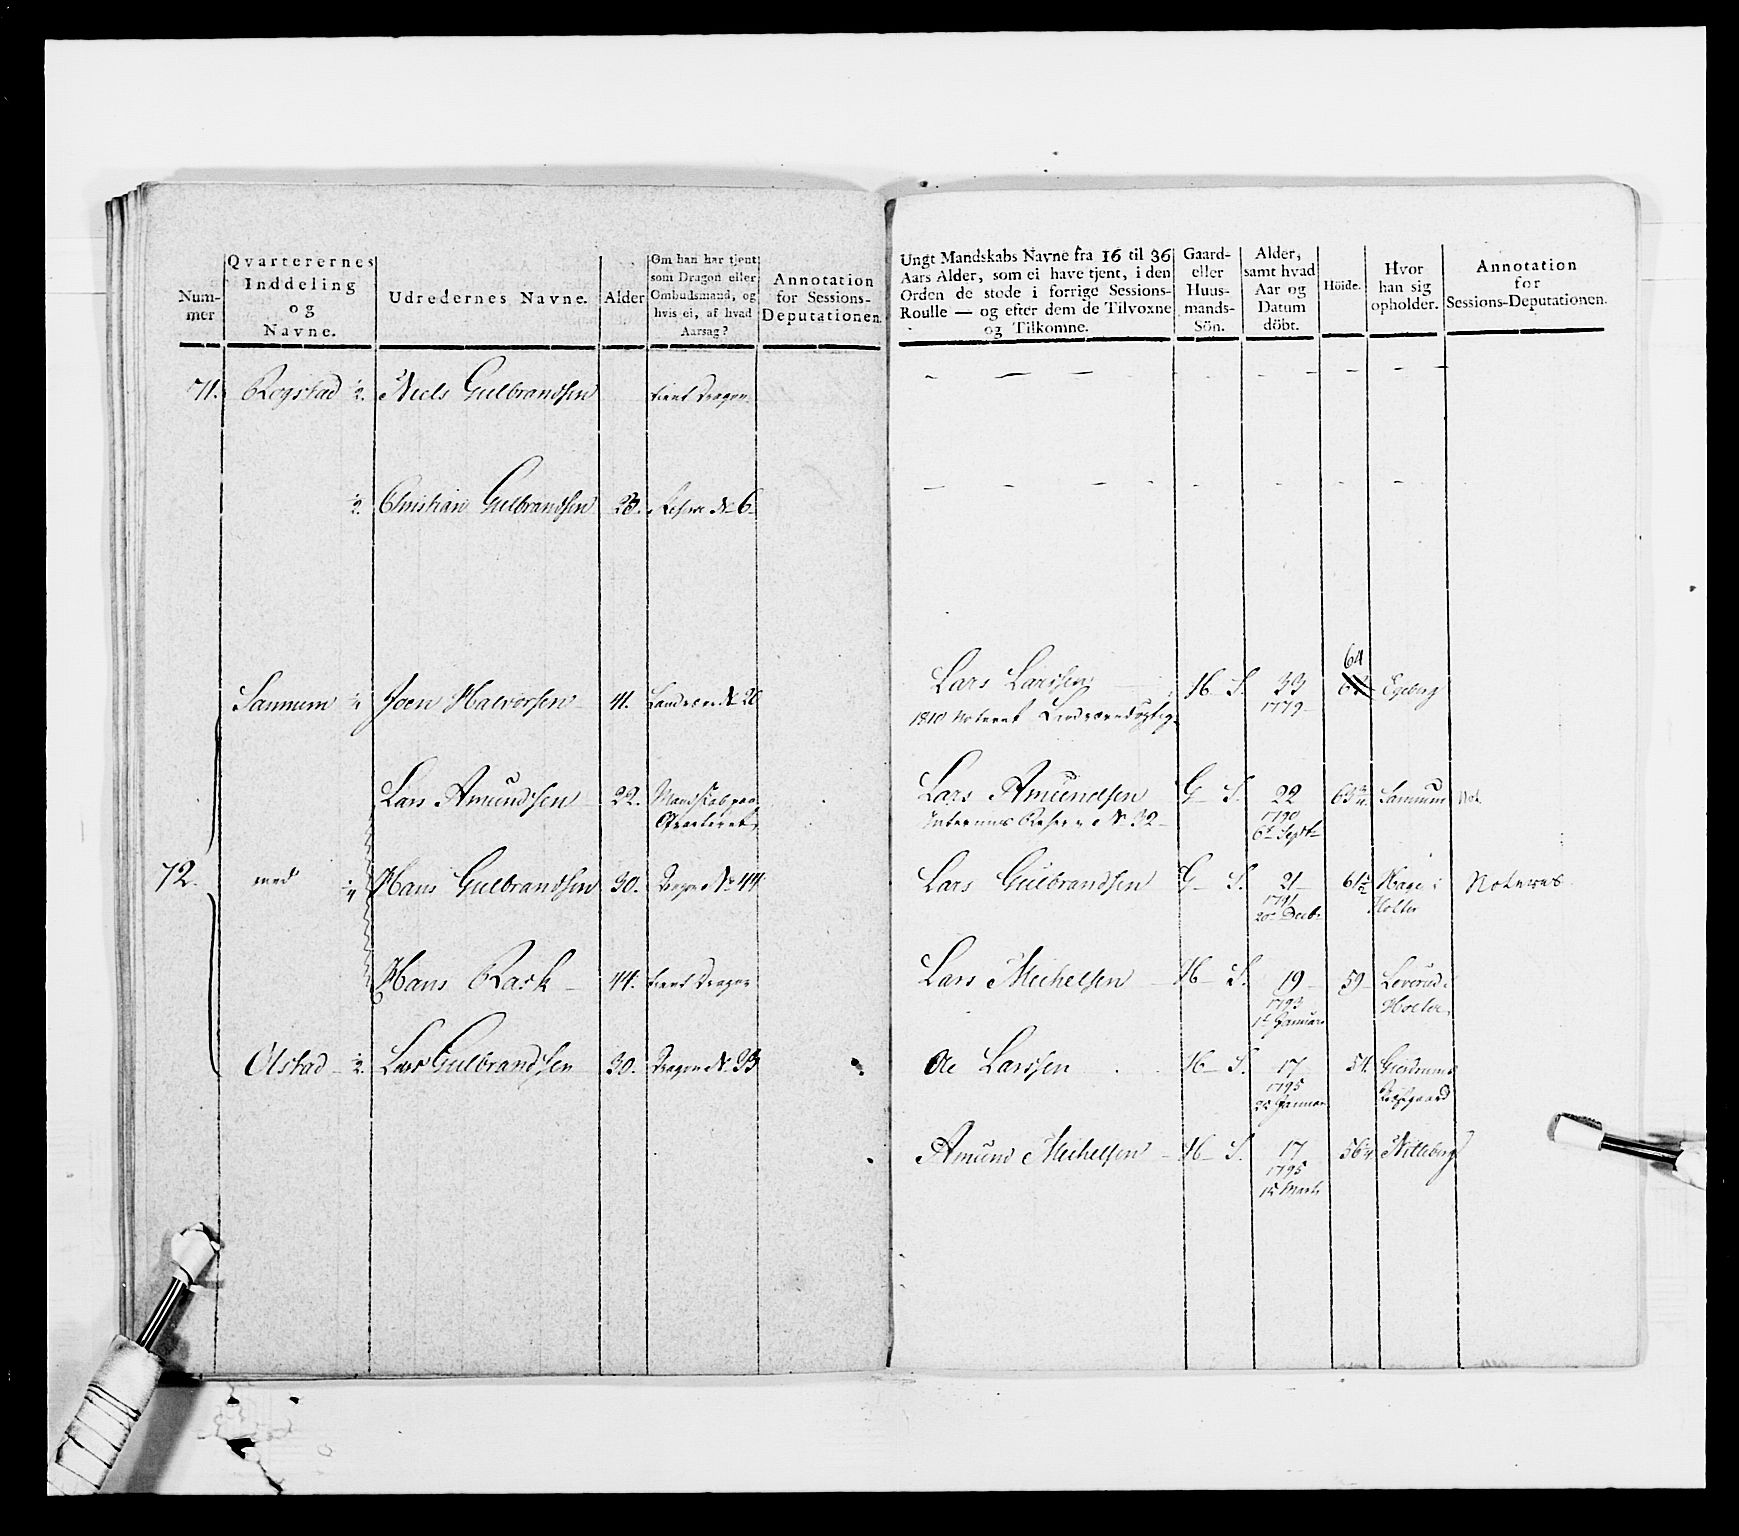 Num-
mer
Qvarterernes
Inddeling
og
Navne.
Udredernes Navne.
Alder
Om han har tjent
som Dragon eller
Ombudsmand, og
hvis ei, af hvad
Aarsag?
Annotation
for Sessions-
Deputationen.
71. Rogstad ½ Niels Gulbrandsen tient Dragon.
½ Christian Gulbrandsen 23. Reserv No 6
Sannum ¼ Joen Halvorsen 41. Landværn No 26
Lars Amundsen 22. Mandskab paa
Qvarteret
72. med ¼ Hans Gulbrandsen 30. Dragon No 44
Hans Rask 44. tient Dragon
Olstad ½ Lars Gulbrandsen 30. Dragon No 23
Ungt Mandskabs Navne fra 16 til 36
Aars Alder, som ei have tjent, i den
Orden de stode i forrige Sessions-
Roulle — og efter dem de Tilvoxne
og Tilkomne.
Gaard-
eller
Huus-
mands-
Sön.
Alder,
samt hvad
Aar og
Datum
döbt.
Höide.
Hvor
han sig
opholder.
Annotation
for
Sessions-Deputationen.
64
Lars Larssen H S. 33 Egeberg
1810 Noteret Landværnsdygtig 1779
Lars Amundsen G S. 22 63¾ Sannum Not.
Reserv No 32 1790
6te Septr
Lars Gulbrandsen G S. 21 61½ Hage i Noteres
1791 Holter
20de Decbr
Lars Michelsen H S. 19 59 Leverud i
1793 Holter
1te Januari
Ole Larssen H S. 17 54. Gierdrums
1795 Præstgaard
Januar
Amund Michelsen H S. 17 56¼ Nilleberg
1795
15 Marts